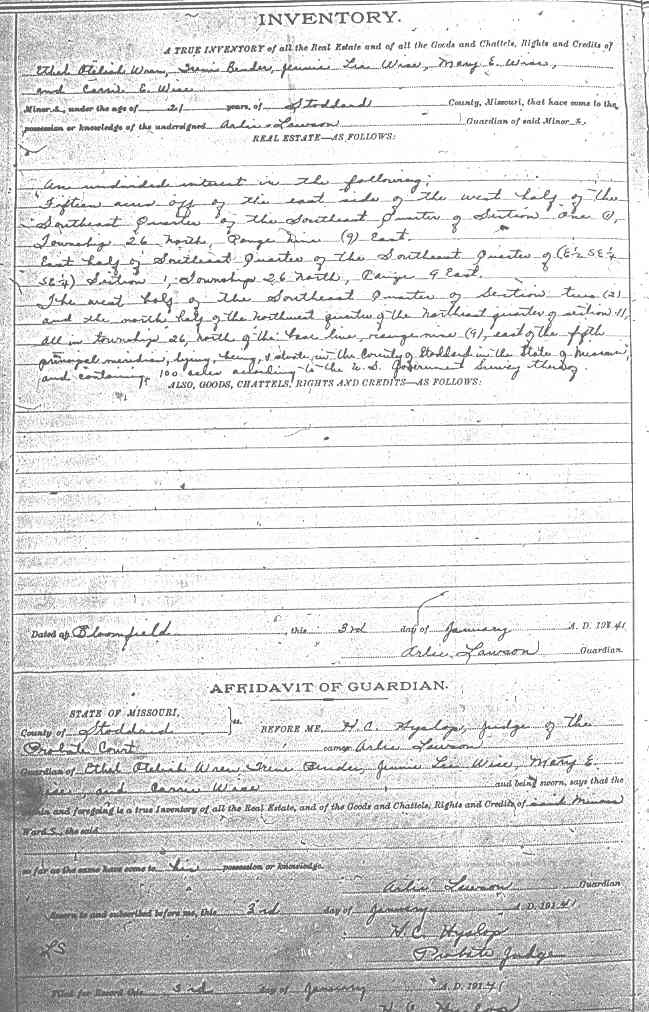 INVENTORY.
A TRUE INVENTORY of all the Real Estate and of all the Goods and Chattels, Rights and Credits of
Ethel Oteliah Wren, Irene Bender, Jennie Lee Wise, Mary E. Wise,
and Carrie E. Wise
Minor s, under the age of 21 years, of Stoddard County, Missouri, that have come to the
possession or knowledge of the undersigned Arlie Lawson Guardian of said Minor s.
REAL ESTATE—AS FOLLOWS:
An undivided interest in the following:
Fifteen acres off of the east side of the west half of the
Southeast Quarter of the Southeast Quarter of Section One (1),
Township 26 North, Range Nine (9) East.
East half of Southeast Quarter of the Southeast Quarter of (E½ SE¼
SE¼) Section 1, Township 26 North, Range 9 East.
The west half of the Southeast Quarter of Section two (2)
and the north half of the Northwest quarter of the Northeast quarter of section 11,
all in township 26, north of the base line, range nine (9), east of the fifth
principal meridian, lying, being, & situate, in the County of Stoddard in the State of Missouri,
and containing 100 acres according to the U.S. Government Survey thereof.
ALSO, GOODS, CHATTELS, RIGHTS AND CREDITS—AS FOLLOWS:
Dated at Bloomfield, this 3rd day of January A. D. 1941
Arlie Lawson Guardian.
AFFIDAVIT OF GUARDIAN.
STATE OF MISSOURI,
County of Stoddard } ss. BEFORE ME, H.C. Hyslop, Judge of the
Probate Court came Arlie Lawson
Guardian of Ethel Oteliah Wren, Irene Bender, Jennie Lee Wise, Mary E.
Wise, and Carrie Wise and being sworn, says that the
within and foregoing is a true Inventory of all the Real Estate, and of the Goods and Chattels, Rights and Credits of said Minors
Ward S, the said
so far as the same have come to his possession or knowledge.
Arlie Lawson Guardian
Sworn to and subscribed before me, this 3rd day of January A. D. 1941
H.C. Hyslop
LS Probate Judge
Filed for Record this 3rd day of January A. D. 1941
H C Hyslop